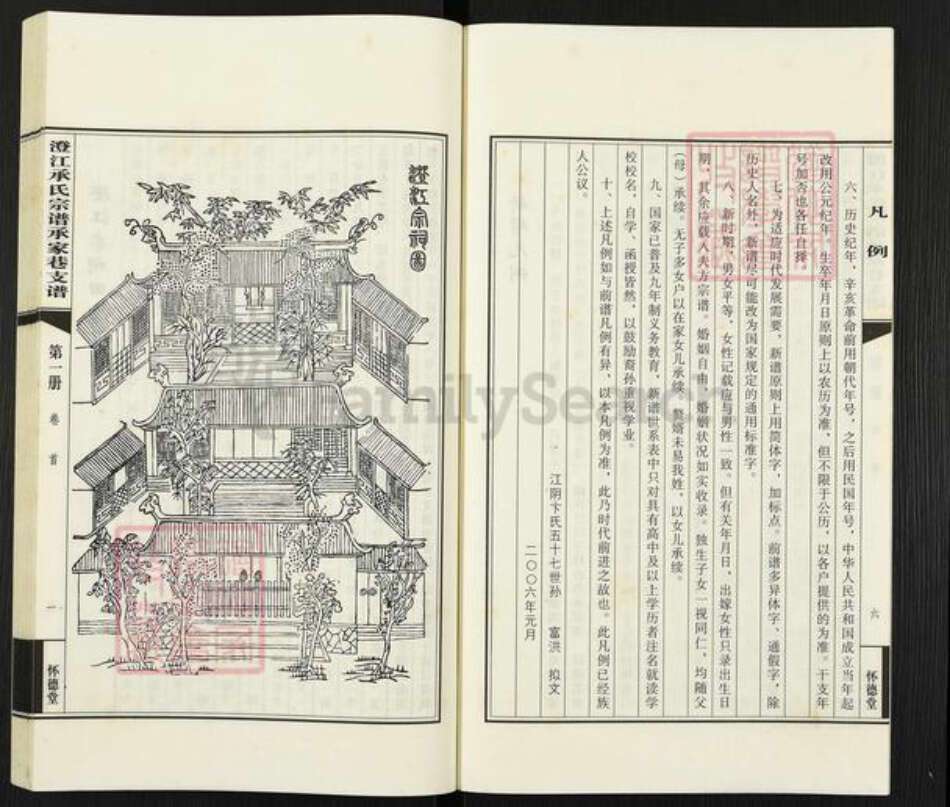 凡例
六、历史纪年，辛亥革命前用朝代年号，之后用民国年号，中华人民共和国成立当年起
改用公元纪年。生卒年月日原则上以农历为准，但不限于公历，以各户提供的为准。干支年
号加否也各任自择。
七、为适应时代发展需要，新谱原则上用简体字，加标点。前谱多异体字、通假字，除
历史人名外，新谱尽可能改为国家规定的通用标准字。
八、新时期，男女平等，女性记载应与男性一致。但有关年月日，出嫁女性只录出生日
期，其余应载入夫方宗谱。婚姻自由，婚姻状况如实收录。独生子女一视同仁，均随父
（母）承续。无子多女户以在家女儿承续，赘婿未易我姓，以女儿承续。
九、国家已普及九年制义务教育，新谱世系表中只对具有高中及以上学历者注名就读学
校校名，自学、函授皆然，以鼓励裔孙重视学业。
十、上述凡例如与前谱凡例有异，以本凡例为准，此乃时代前进之故也。此凡例已经族
人公议。
江阴卞氏五十七世孙 富洪 拟文
二〇〇六年元月
六
怀德堂
澄江宗祠图
澄江承氏宗谱承家巷支谱
第一册
卷首
一
怀德堂
FamilySearch